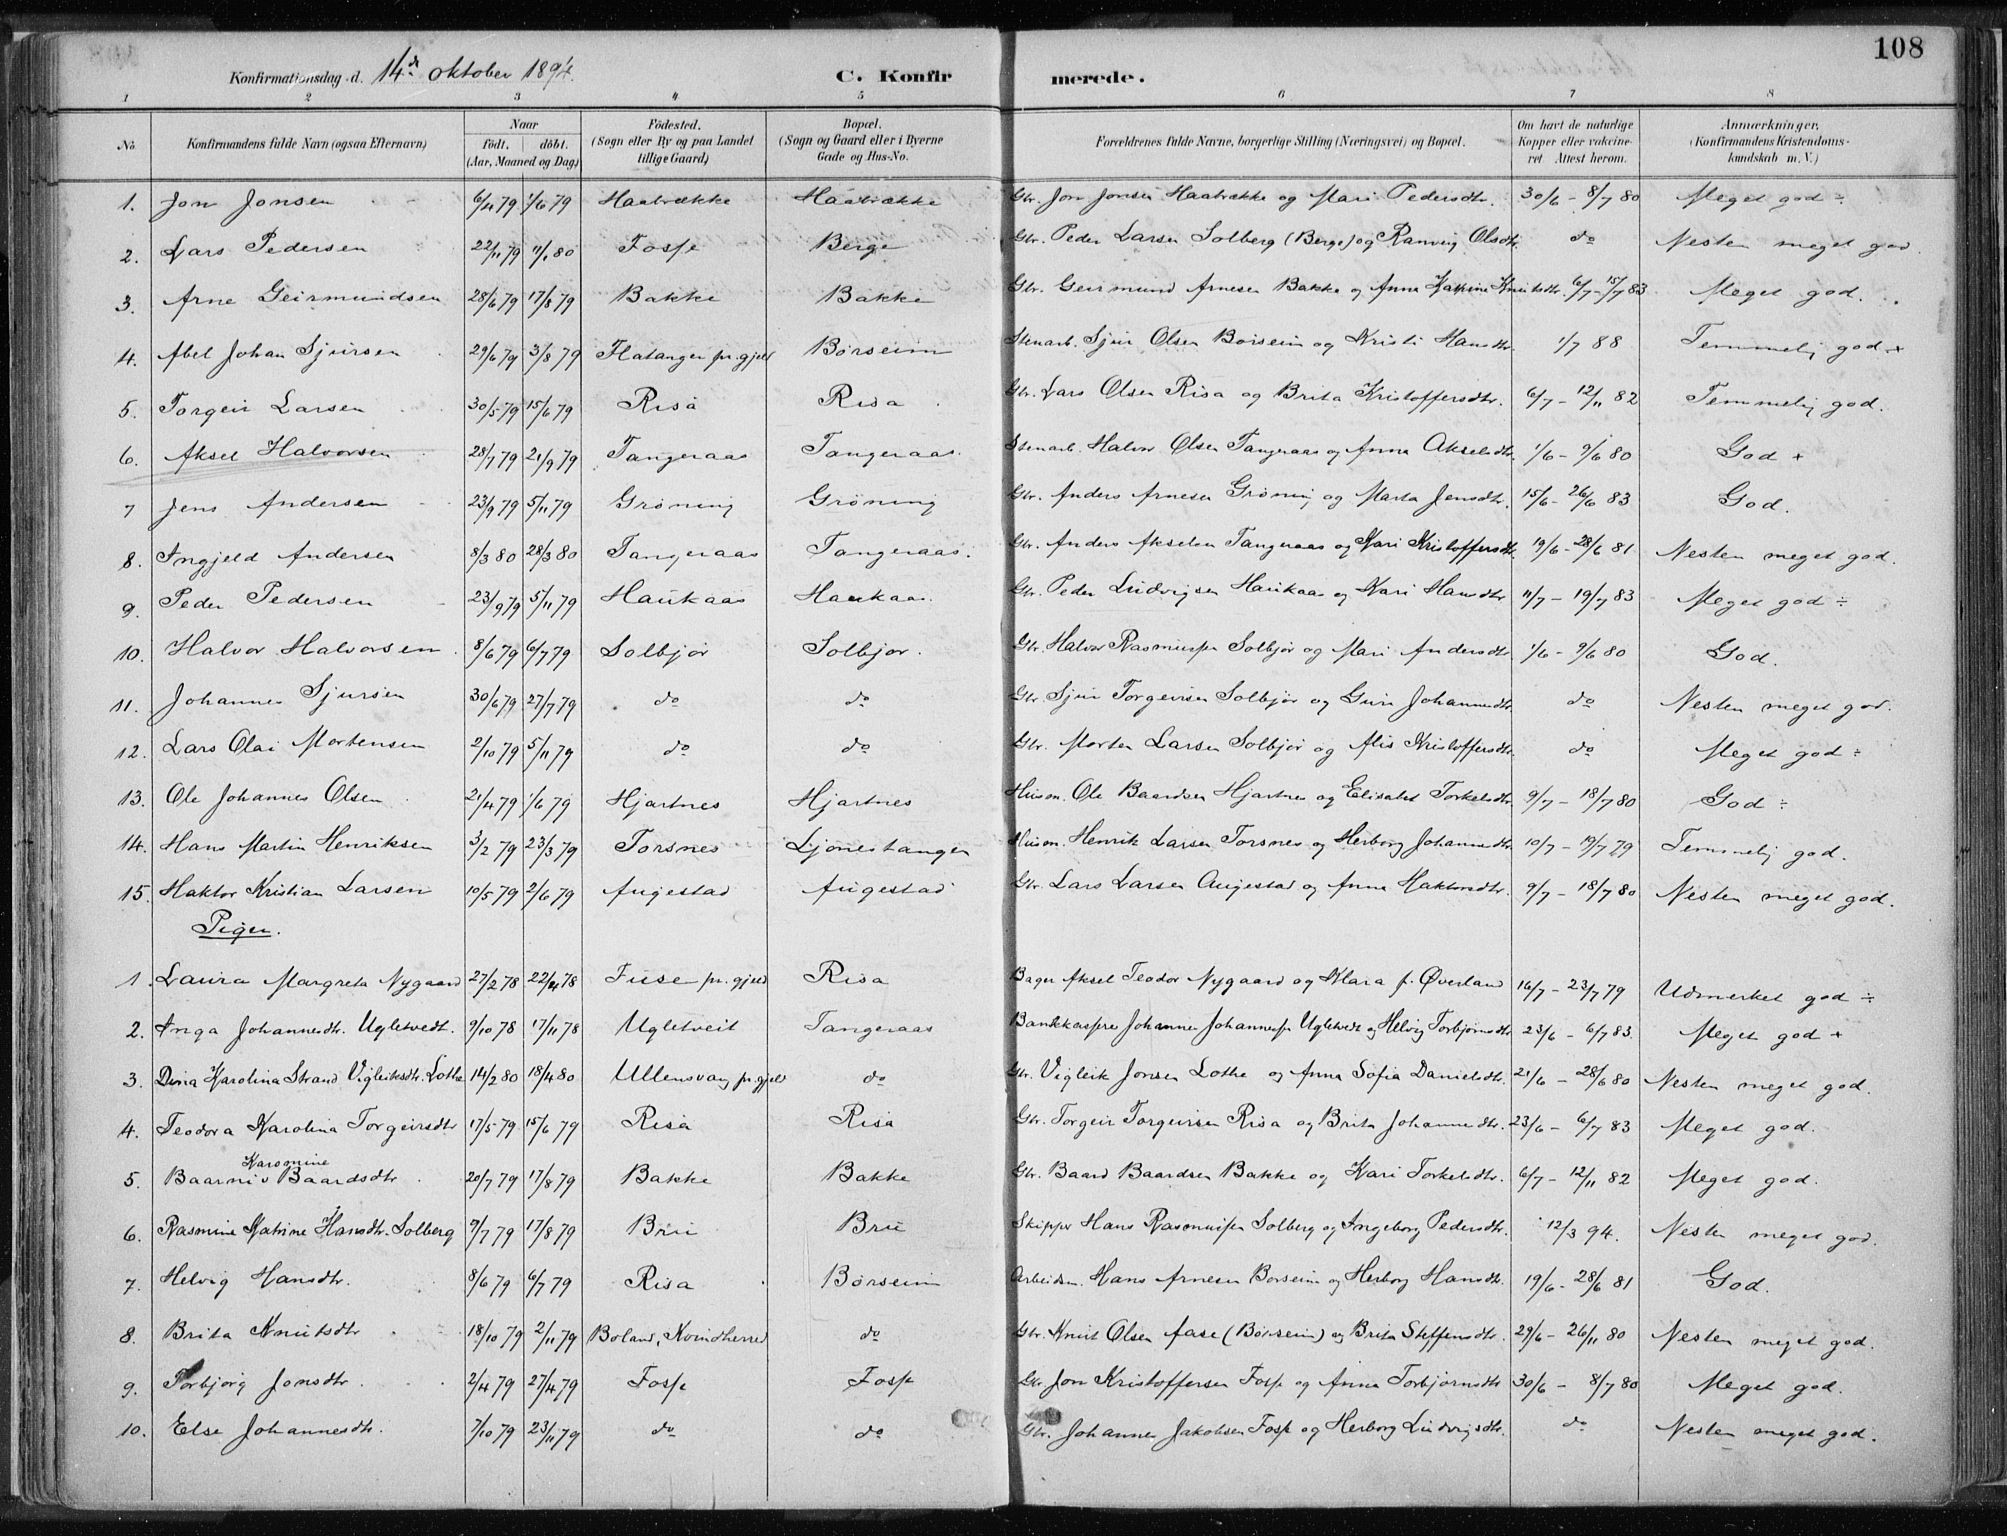 108
Konfirmationsdag d. 14de oktober 1894.
C. Konfirmerede.
1 2 3 4 5 6 7 8
No. | Konfirmandens fulde Navn (ogsaa Efternavn) | Naar født. døbt. (Aar, Maaned og Dag) | Fødested. (Sogn eller By og paa Landet tillige Gaard) | Bopæl. (Sogn og Gaard eller i Byerne Gade og Hus-No. | Forældrenes fulde Navne, borgerlige Stilling (Næringsvei) og Bopæl. | Om havt de naturlige Kopper eller vakcineret Attest herom. | Anmærkninger. (Konfirmandens Kristendomskundskab m. V.)
1. Jon Jonsen | 6/4 79 | 1/6 79 | Haabrække | Haabrække | Gbr. Jon Jonsen Haabrække og Mari Pedersdtr. | 30/6 - 8/7 80 | Meget god ÷
2. Lars Pedersen | 22/11 79 | 11/1 80 | Fosse | Berge | Gbr. Peder Larsen Solberg (Berge) og Ranveig Olsdtr. | do | Nesten meget god.
3. Arne Geirmundsen | 28/6 79 | 17/8 79 | Bakke | Bakke | Gbr. Geirmund Arnesen Bakke og Anna Katrine Knutsdtr. | 6/7 - 15/7 83 | Meget god.
4. Abel Johan Sjursen | 29/6 79 | 3/8 79 | Flatanger pr.gjeld | Børseim | Stenarb. Sjur Olsen Børseim og Kristi Hansdtr. | 1/7 88 | Temmelig god +
5. Torgeir Larsen | 30/5 79 | 15/6 79 | Risa | Risa | Gbr. Lars Olsen Risa og Brita Kristoffersdtr. | 6/7 - 12/11 82 | Temmelig god.
6. Aksel Halvorsen | 28/7 79 | 21/9 79 | Tangeraas | Tangeraas. | Stenarb. Halvor Olsen Tangeraas og Anna Akselsdtr. | 1/6 - 9/6 80 | God +
7 Jens Andersen | 23/9 79 | 5/11 79 | Grøning | Grøning | Gbr. Anders Arnesen Grøning og Marta Jensdtr. | 15/6 - 26/6 83 | God.
8. Ingjeld Andersen | 8/3 80 | 28/3 80 | Tangeraas | Tangeraas. | Gbr. Anders Akselsen Tangeraas og Kari Kristoffersdtr. | 19/6 - 28/6 81 | Nesten meget god.
9. Peder Pedersen | 23/9 79 | 5/11 79 | Haukaas | Haukaas. | Gbr. Peder Ludvigsen Haukaas og Kari Hansdtr | 11/7 - 19/7 83 | Meget god ÷
10. Halvor Halvorsen | 8/6 79 | 6/7 79 | Solbjør | Solbjør. | Gbr. Halvor Rasmussen Solbjør og Mari Andersdtr | 1/6 - 9/6 80 | God.
11. Johannes Sjursen | 30/6 79 | 27/7 79 | do | do | Gbr. Sjur Torgeirsen Solbjør og Guri Johannesdtr | do | Nesten meget god.
12. Lars Olai Mortensen | 2/10 79 | 5/11 79 | do | do | Gbr. Morten Larsen Solbjør og Alis Kristoffersdtr. | do | Meget god ÷
13. Ole Johannes Olsen | 21/4 79 | 1/6 79 | Hjartnes | Hjartnes | Husm. Ole Baardsen Hjartnes og Elisabet Torkelsdtr | 9/7 - 18/7 80 | God ÷
14. Hans Martin Henriksen | 3/2 79 | 23/3 79 | Torsnes | Ljonestangen | Husm. Henrik Larsen Torsnes og Herborg Johannesdtr | 10/7 - 19/7 79 | Temmelig god.
15. Haktor Kristian Larsen | 10/5 79 | 2/6 79 | Augestad | Augestad | Gbr. Lars Larsen Augestad og Anna Haktorsdtr. | 9/7 - 18/7 80 | Nesten meget god.
Piger.
1. Laura Margreta Nygaard | 27/2 78 | 22/4 78 | Fuse pr.gjeld | Risa | Bager Aksel Teodor Nygaard og Klara f. Øverland | 16/7 - 23/7 79 | Udmerket god ÷
2. Inga Johannesdtr. Ugletvedt. | 9/10 78 | 17/11 78 | Ugletveit | Tangeraas | Bankkasser Johannes Johannessen Ugletvedt og Helvig Torbjørnsdtr | 23/6 - 6/7 83. | Meget god +
3. Dina Karolina Strand Vigleiksdtr. Lothe | 14/2 80 | 18/4 80 | Ullensvang pr.gjeld | do | Gbr. Vigleik Jonsen Lothe og Anna Sofia Danielsdtr. | 21/6 - 28/6 80 | Nesten meget god.
4. Teodora Karolina Torgeirsdtr | 17/5 79 | 15/6 79 | Risa | Risa | Gbr. Torgeir Torgeirsen Risa og Brita Johannesdtr. | 23/6 - 6/7 83 | Meget god.
Karsmine
5. Baarni Baardsdtr | 20/7 79 | 17/8 79 | Bakke | Bakke | Gbr. Baard Baardsen Bakke og Kari Torkelsdtr. | 6/7 - 12/11 82 | Meget god.
6. Rasmine Katrine Hansdtr. Solberg | 9/7 79 | 17/8 79 | Bru | Bru | Skipper Hans Rasmussen Solberg og Ingeborg Pedersdtr. | 12/3 94. | Nesten meget god.
7. Helvig Hansdtr. | 8/6 79 | 6/7 79 | Risa | Børseim | Arbeidsm. Hans Arnesen Børseim og Herborg Hansdtr. | 19/6 - 28/6 81 | God.
8. Brita Knutsdtr | 18/10 79 | 2/11 79 | Boland, Kvindherred | do | Gbr. Knut Olsen Aase (Børseim) og Brita Steffensdtr. | 29/6 - 26/11 80 | Nesten meget god.
9. Torbjørg Jonsdtr. | 2/4 79 | 27/4 79 | Fosse | Fosse | Gbr. Jon Kristoffersen Fosse og Anna Torbjørnsdtr | 30/6 - 8/7 80 | Meget god.
10. Else Johannesdtr. | 7/10 79 | 23/11 79 | do | do | Gbr. Johannes Jakobsen Fosse og Herborg Ludvigsdtr. | do | Nesten meget god.